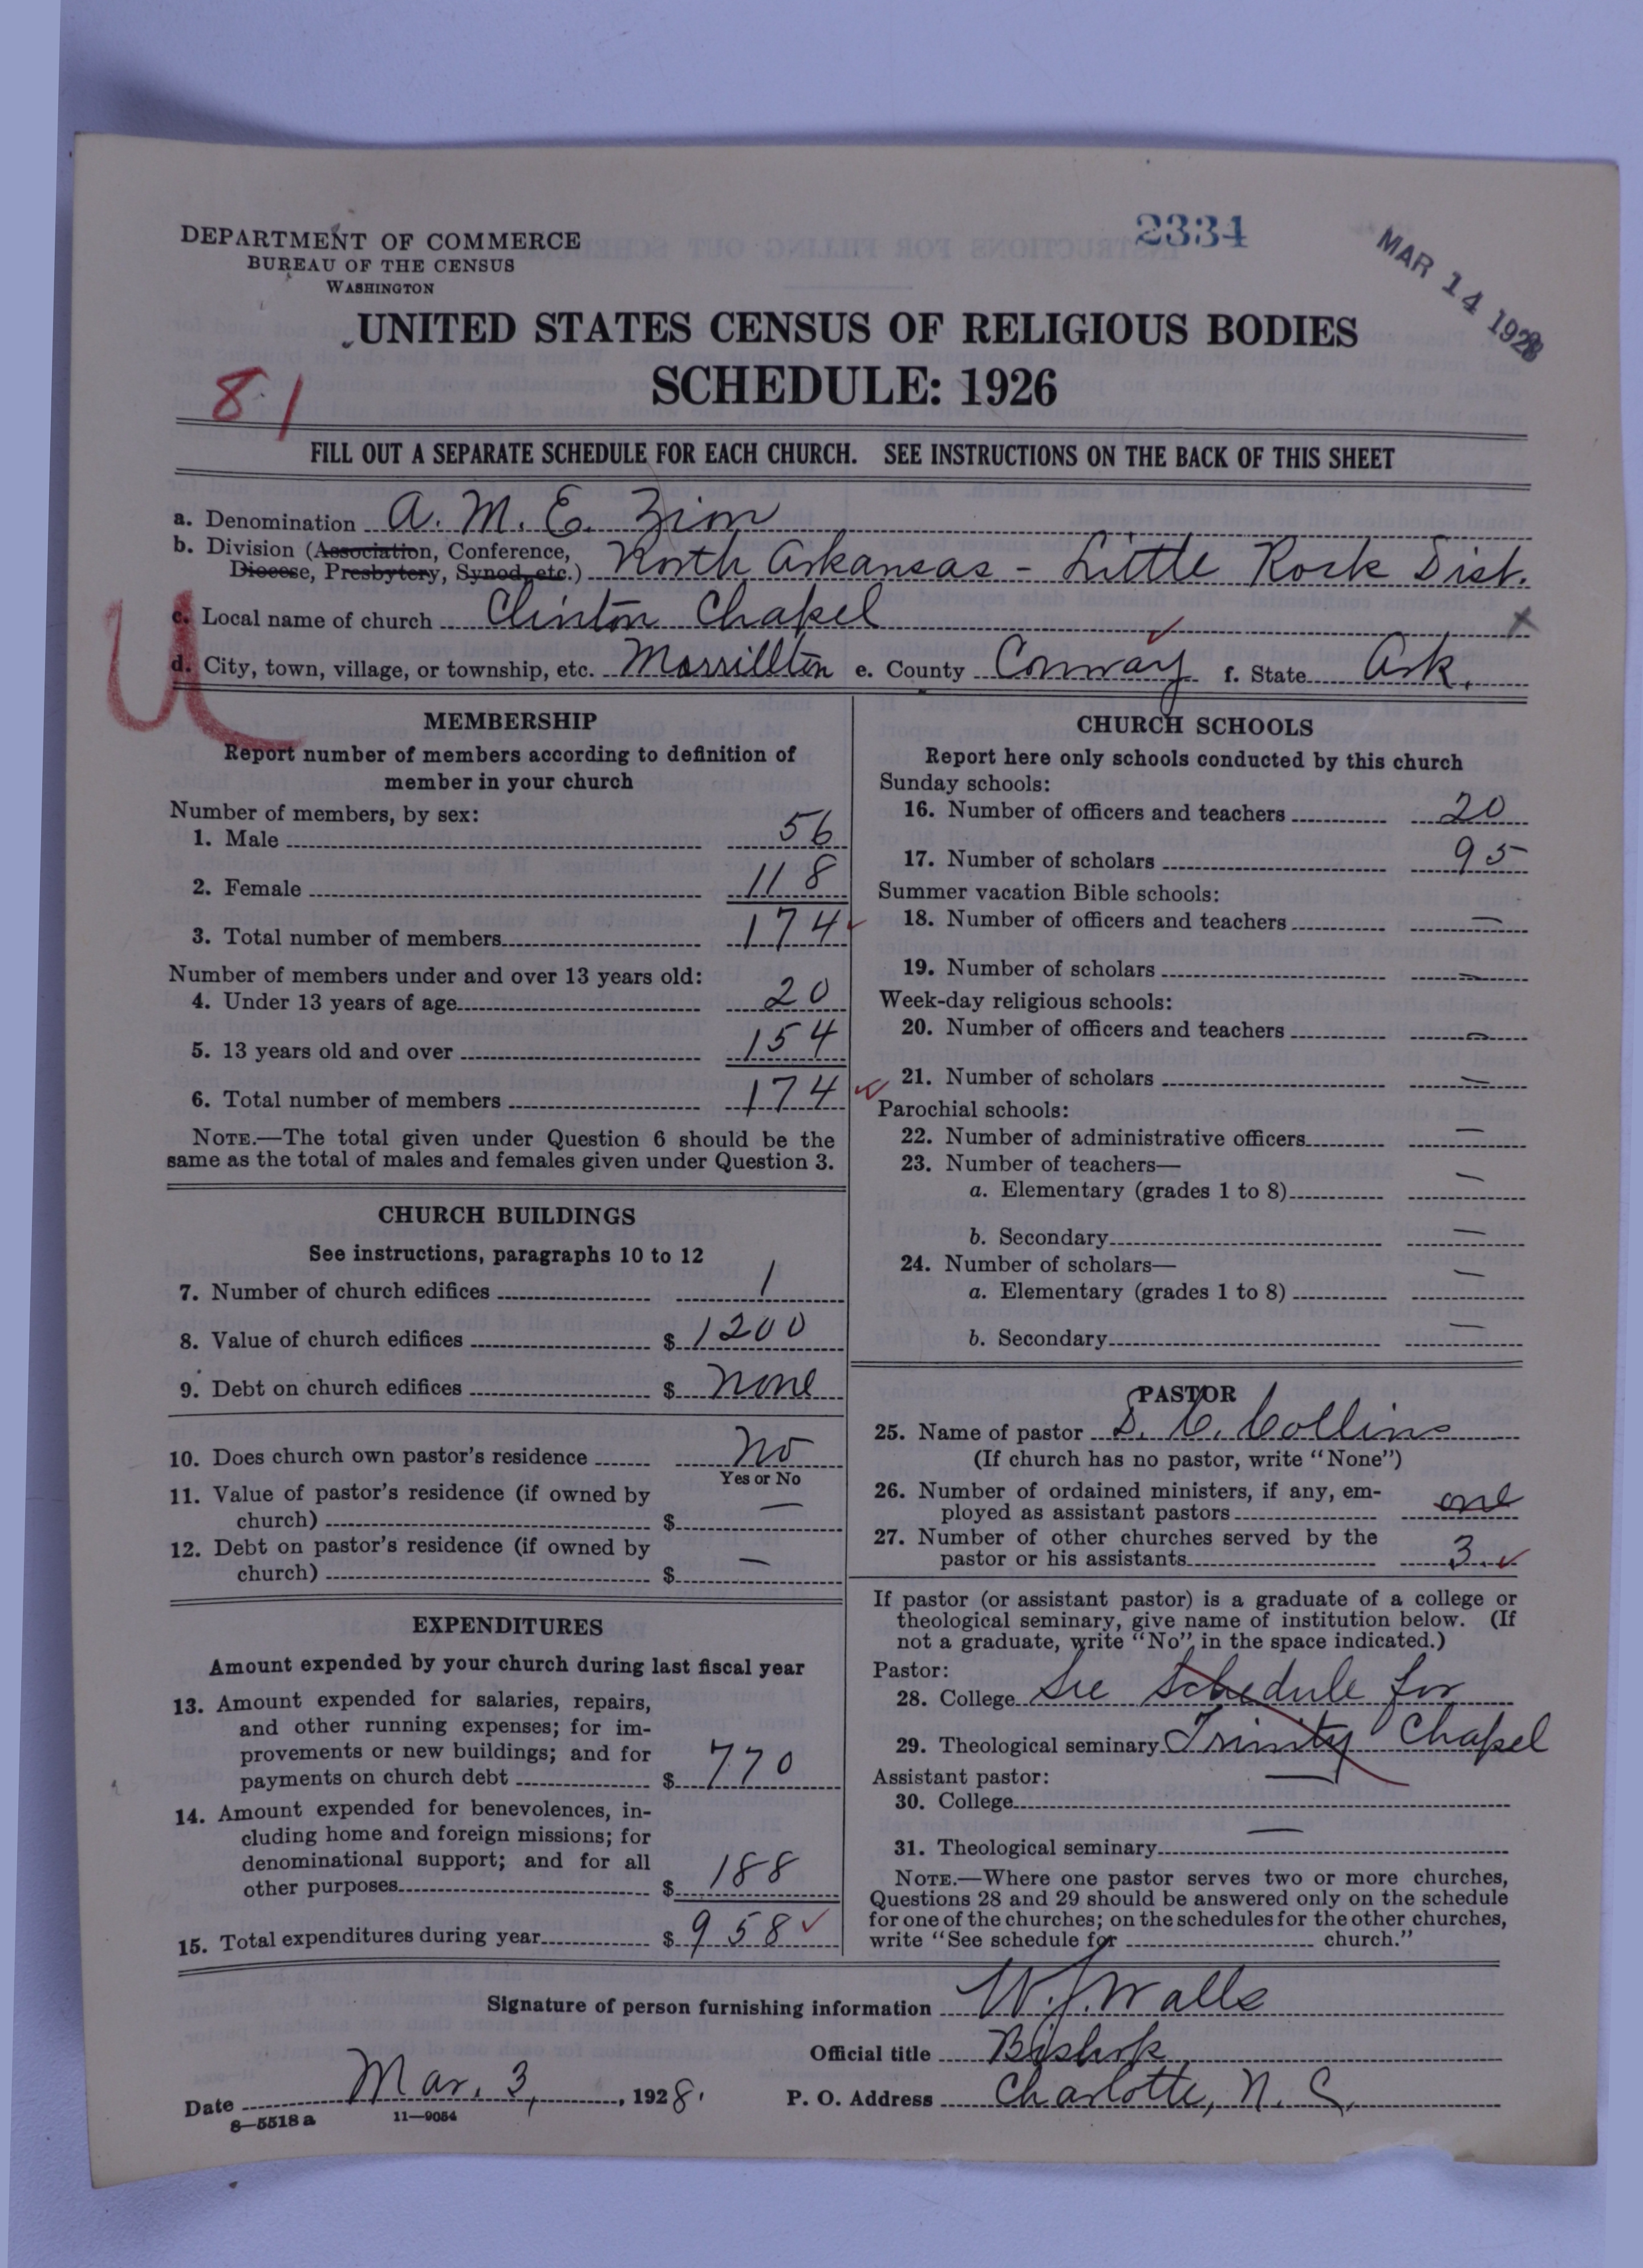 DEPARTMENT OF COMMERCE
BUREAU OF THE CENSUS
WASHINGTON
2334
MAR 14 1928
UNITED STATES CENSUS OF RELIGIOUS BODIES
SCHEDULE: 1926
81
FILL OUT A SEPARATE SCHEDULE FOR EACH CHURCH. SEE INSTRUCTIONS ON THE BACK OF THIS SHEET
a. Denomination A. M. E. Zion
b. Division (Association, Conference,
Diocese, Presbytery, Synod, etc.) North Arkansas - Little Rock Dist.
c. Local name of church Clinton Chapel
d. City, town, village, or township, etc. Morrillton e. County Conway f. State Ark.
U
MEMBERSHIP
Report number of members according to definition of
member in your church
Number of members, by sex:
1. Male 56
2. Female 118
3. Total number of members 174
Number of members under and over 13 years old:
4. Under 13 years of age 20
5. 13 years old and over 154
6. Total number of members 174
NOTE.—The total given under Question 6 should be the
same as the total of males and females given under Question 3.
CHURCH BUILDINGS
See instructions, paragraphs 10 to 12
7. Number of church edifices 1
8. Value of church edifices $ 1200
9. Debt on church edifices $ none
10. Does church own pastor's residence No
Yes or No
11. Value of pastor's residence (if owned by
church) $ —
12. Debt on pastor's residence (if owned by
church) $ —
EXPENDITURES
Amount expended by your church during last fiscal year
13. Amount expended for salaries, repairs,
and other running expenses; for im-
provements or new buildings; and for
payments on church debt $ 770
14. Amount expended for benevolences, in-
cluding home and foreign missions; for
denominational support; and for all
other purposes $ 188
15. Total expenditures during year $ 958
CHURCH SCHOOLS
Report here only schools conducted by this church
Sunday schools:
16. Number of officers and teachers 20
17. Number of scholars 95
Summer vacation Bible schools:
18. Number of officers and teachers —
19. Number of scholars —
Week-day religious schools:
20. Number of officers and teachers —
21. Number of scholars —
Parochial schools:
22. Number of administrative officers —
23. Number of teachers—
a. Elementary (grades 1 to 8) —
b. Secondary —
24. Number of scholars—
a. Elementary (grades 1 to 8) —
b. Secondary —
PASTOR
25. Name of pastor D. C. Collins
(If church has no pastor, write "None")
26. Number of ordained ministers, if any, em-
ployed as assistant pastors one
27. Number of other churches served by the
pastor or his assistants 3
If pastor (or assistant pastor) is a graduate of a college or
theological seminary, give name of institution below. (If
not a graduate, write "No" in the space indicated.)
Pastor:
28. College See Schedule for
29. Theological seminary Trinity Chapel
Assistant pastor:
30. College —
31. Theological seminary —
NOTE.—Where one pastor serves two or more churches,
Questions 28 and 29 should be answered only on the schedule
for one of the churches; on the schedules for the other churches,
write "See schedule for church."
Signature of person furnishing information W. J. Walls
Official title Bishop
Date Mar. 3, 1928. P. O. Address Charlotte, N. C.
8—5518 a 11—9054